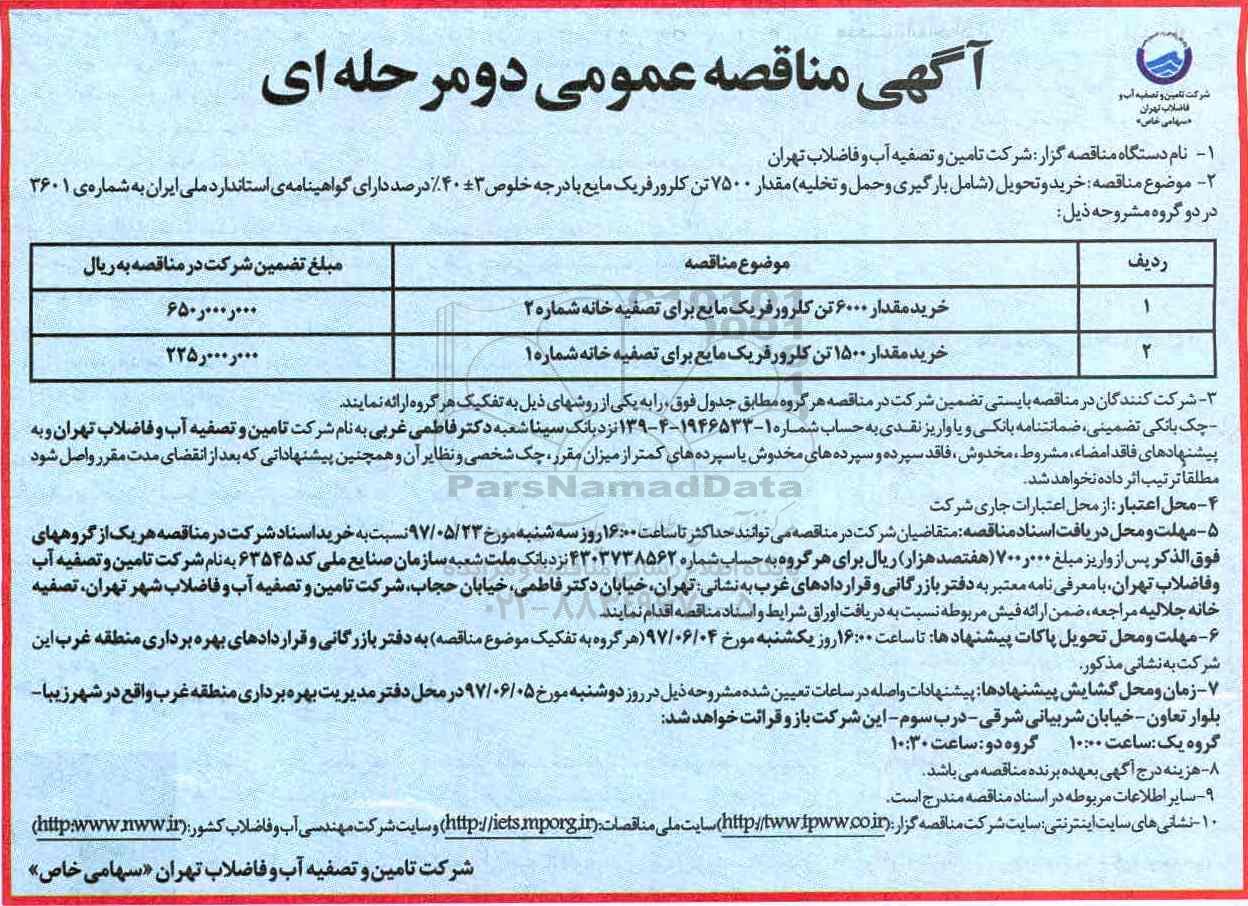 آگهی مناقصه عمومی دو مرحله ای
شرکت تامین و تصفیه آب و
فاضلاب تهران
«سهامی خاص»
۱- نام دستگاه مناقصه گزار: شرکت تامین و تصفیه آب و فاضلاب تهران
۲- موضوع مناقصه: خرید و تحویل (شامل بارگیری و حمل و تخلیه) مقدار ۷۵۰۰ تن کلرورفریک مایع با درجه خلوص ۳±۴۰٪ درصد دارای گواهینامه‌ی استاندارد ملی ایران به شماره‌ی ۳۶۰۱
در دو گروه مشروحه ذیل:
ردیف موضوع مناقصه مبلغ تضمین شرکت در مناقصه به ریال
۱ خرید مقدار ۶۰۰۰ تن کلرورفریک مایع برای تصفیه خانه شماره ۲ ۶۵۰ر۰۰۰ر۰۰۰
۲ خرید مقدار ۱۵۰۰ تن کلرورفریک مایع برای تصفیه خانه شماره ۱ ۲۲۵ر۰۰۰ر۰۰۰
۳- شرکت کنندگان در مناقصه بایستی تضمین شرکت در مناقصه هر گروه مطابق جدول فوق، را به یکی از روشهای ذیل به تفکیک هر گروه ارائه نمایند.
-چک بانکی تضمینی، ضمانتنامه بانکی و یا واریز نقدی به حساب شماره ۱-۱۹۴۶۵۳۳-۴-۱۳۹ نزد بانک سینا شعبه دکتر فاطمی غربی به نام شرکت تامین و تصفیه آب و فاضلاب تهران و به
پیشنهادهای فاقد امضاء، مشروط، مخدوش، فاقد سپرده و سپرده های مخدوش یا سپرده های کمتر از میزان مقرر، چک شخصی و نظایر آن و همچنین پیشنهاداتی که بعد از انقضای مدت مقرر واصل شود
مطلقاً ترتیب اثر داده نخواهد شد.
۴- محل اعتبار: از محل اعتبارات جاری شرکت
۵- مهلت و محل دریافت اسناد مناقصه: متقاضیان شرکت در مناقصه می توانند حداکثر تا ساعت ۱۶:۰۰ روز سه شنبه مورخ ۹۷/۰۵/۲۳ نسبت به خرید اسناد شرکت در مناقصه هر یک از گروههای
فوق الذکر پس از واریز مبلغ ۷۰۰ر۰۰۰ (هفتصد هزار) ریال برای هر گروه به حساب شماره ۴۳۰۳۷۳۸۵۶۲ نزد بانک ملت شعبه سازمان صنایع ملی کد ۶۳۵۴۵ به نام شرکت تامین و تصفیه آب
و فاضلاب تهران، با معرفی نامه معتبر به دفتر بازرگانی و قراردادهای غرب به نشانی: تهران، خیابان دکتر فاطمی، خیابان حجاب، شرکت تامین و تصفیه آب و فاضلاب شهر تهران، تصفیه
خانه جلالیه مراجعه، ضمن ارائه فیش مربوطه نسبت به دریافت اوراق شرایط و اسناد مناقصه اقدام نمایند.
۶- مهلت و محل تحویل پاکات پیشنهادها: تا ساعت ۱۶:۰۰ روز یکشنبه مورخ ۹۷/۰۶/۰۴ (هر گروه به تفکیک موضوع مناقصه) به دفتر بازرگانی و قراردادهای بهره برداری منطقه غرب این
شرکت به نشانی مذکور.
۷- زمان و محل گشایش پیشنهادها: پیشنهادات واصله در ساعات تعیین شده مشروحه ذیل در روز دوشنبه مورخ ۹۷/۰۶/۰۵ در محل دفتر مدیریت بهره برداری منطقه غرب واقع در شهر زیبا-
بلوار تعاون- خیابان شربیانی شرقی- درب سوم- این شرکت باز و قرائت خواهد شد:
گروه یک: ساعت ۱۰:۰۰ گروه دو: ساعت ۱۰:۳۰
۸- هزینه درج آگهی بعهده برنده مناقصه می باشد.
۹- سایر اطلاعات مربوطه در اسناد مناقصه مندرج است.
۱۰- نشانی های سایت اینترنتی: سایت شرکت مناقصه گزار: (http://tww.tpww.co.ir) سایت ملی مناقصات: (http://iets.mporg.ir) و سایت شرکت مهندسی آب و فاضلاب کشور: (http:www.nww.ir)
شرکت تامین و تصفیه آب و فاضلاب تهران «سهامی خاص»
ParsNamadData